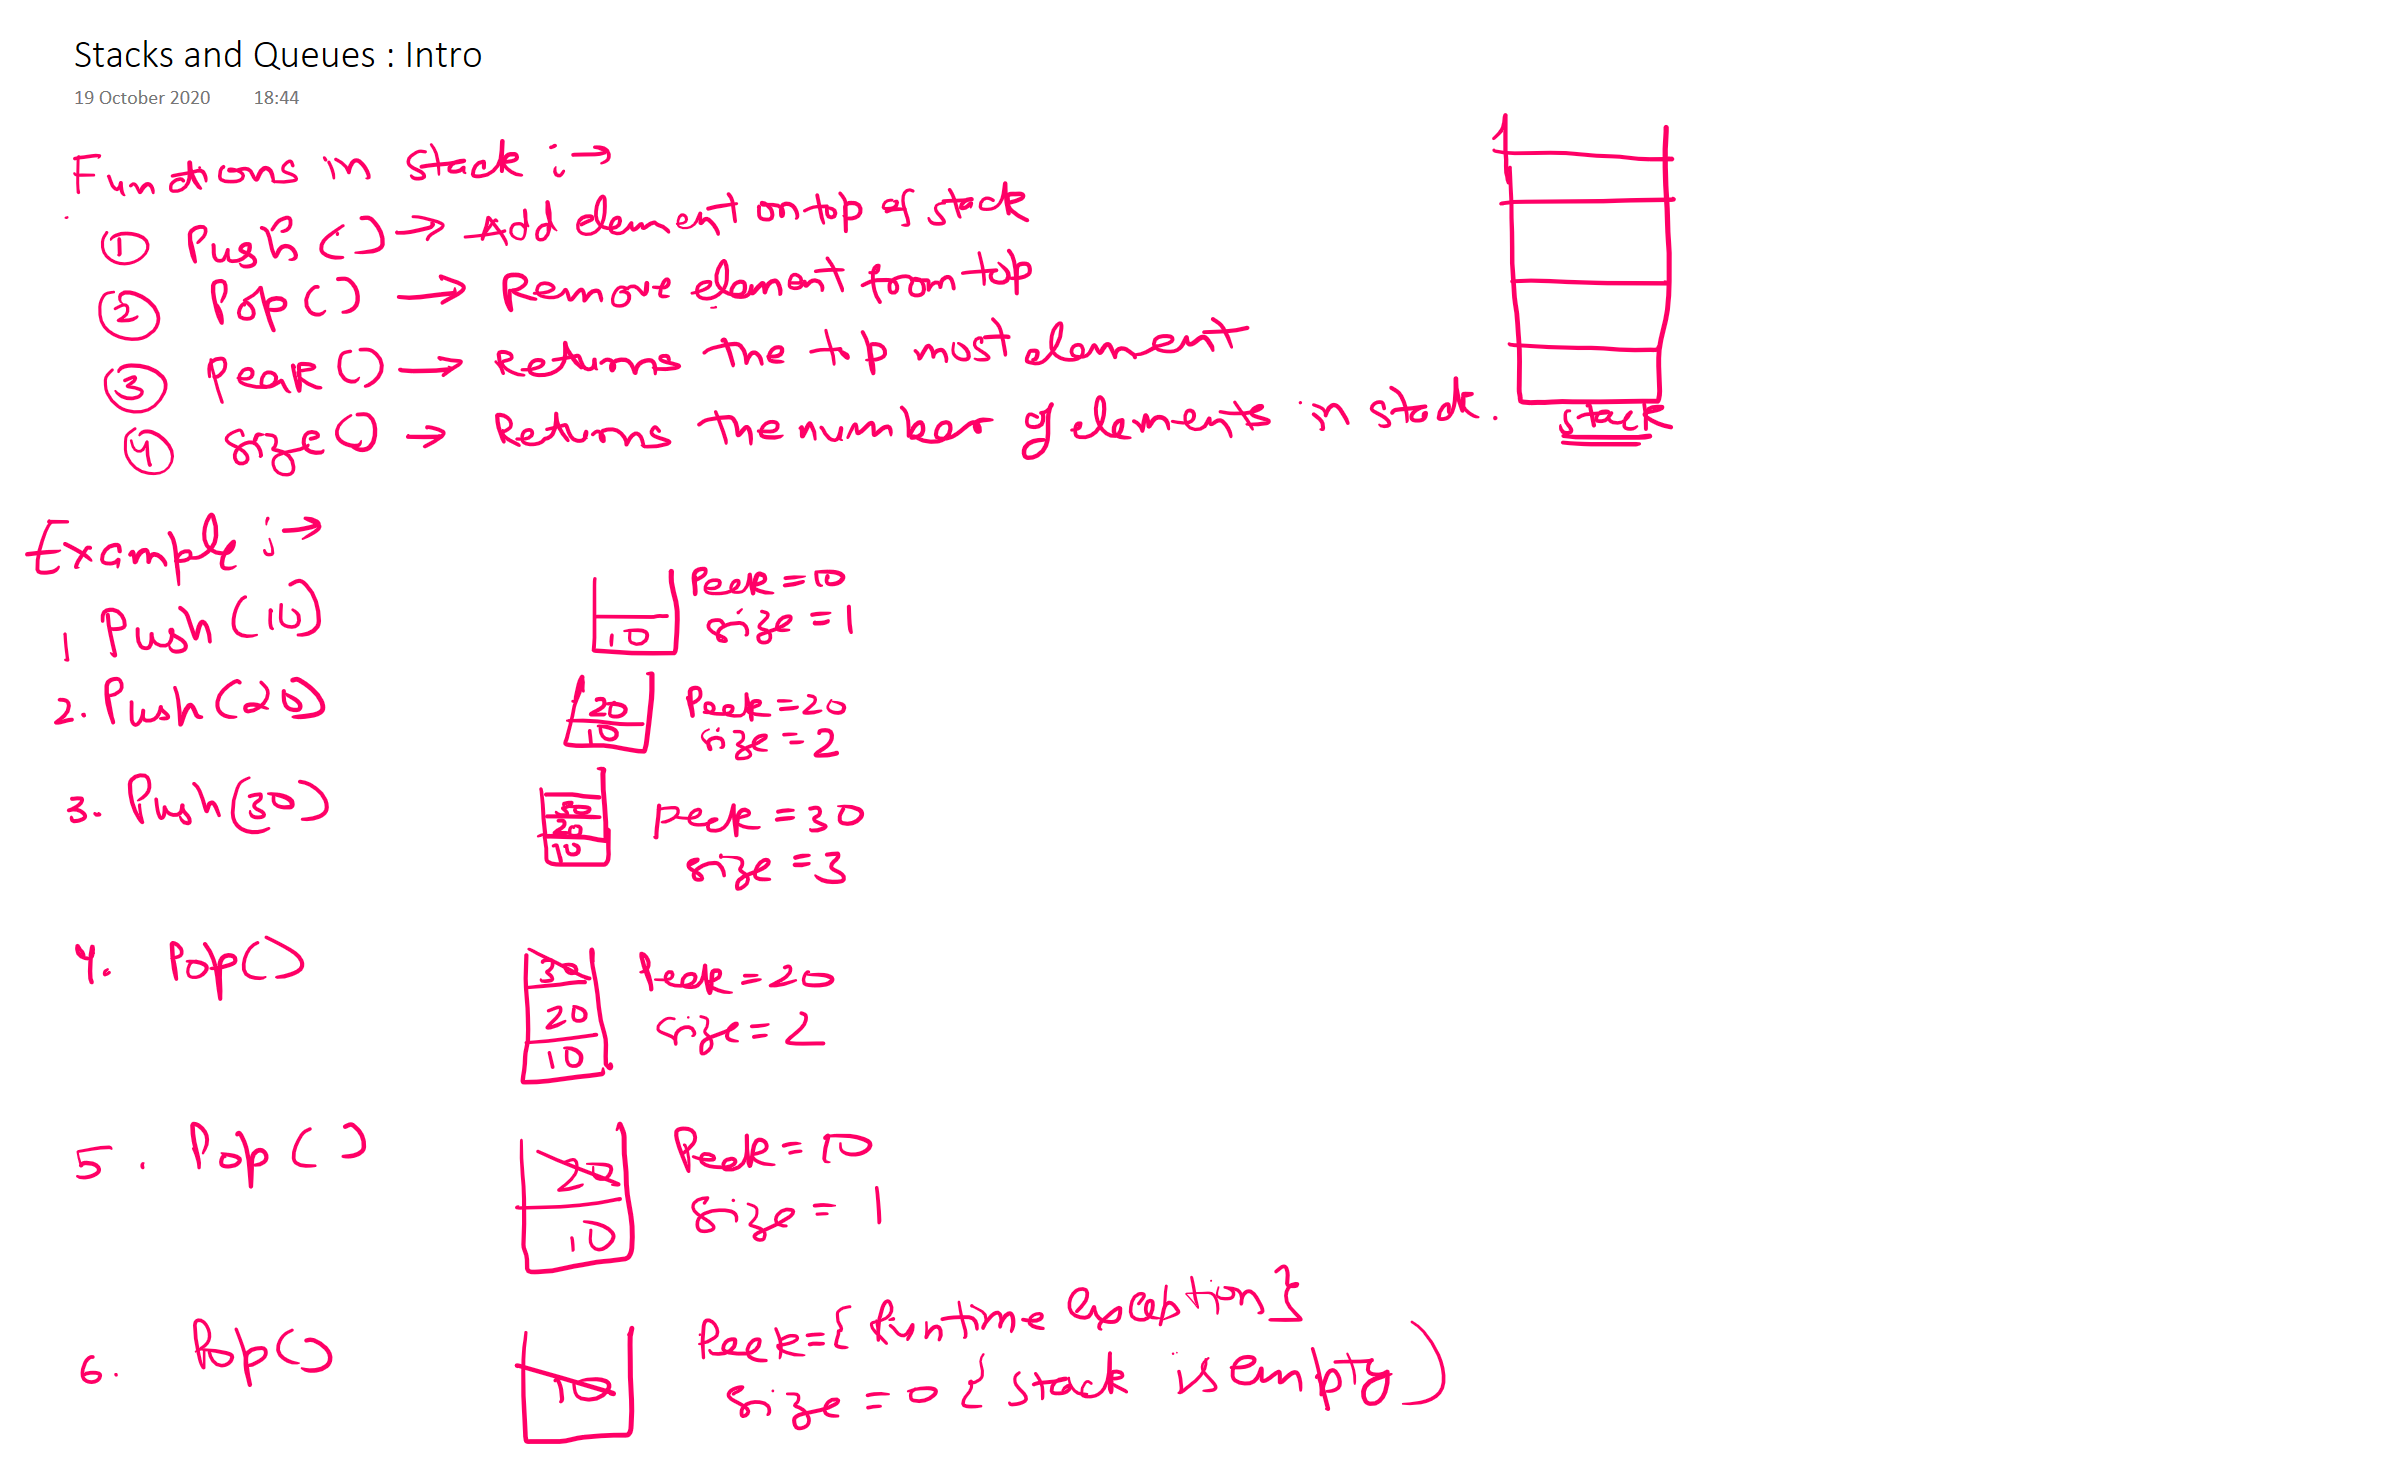 Stacks and Queues : Intro
19 October 2020 18:44
Functions in stack :→
① Push () → Add element on top of stack
② Pop () → Remove element from top
③ Peek () → Returns the top most element
④ size () → Returns the number of elements in stack.
stack
Example :→
1 Push (10)
10
Peek = 10
size = 1
2. Push (20)
20
10
Peek = 20
size = 2
3. Push (30)
30
20
10
Peek = 30
size = 3
4. Pop()
30
20
10
Peek = 20
size = 2
5. Pop ()
20
10
Peek = 10
size = 1
6. Pop()
10
Peek = { Runtime exception }
size = 0 { stack is empty )